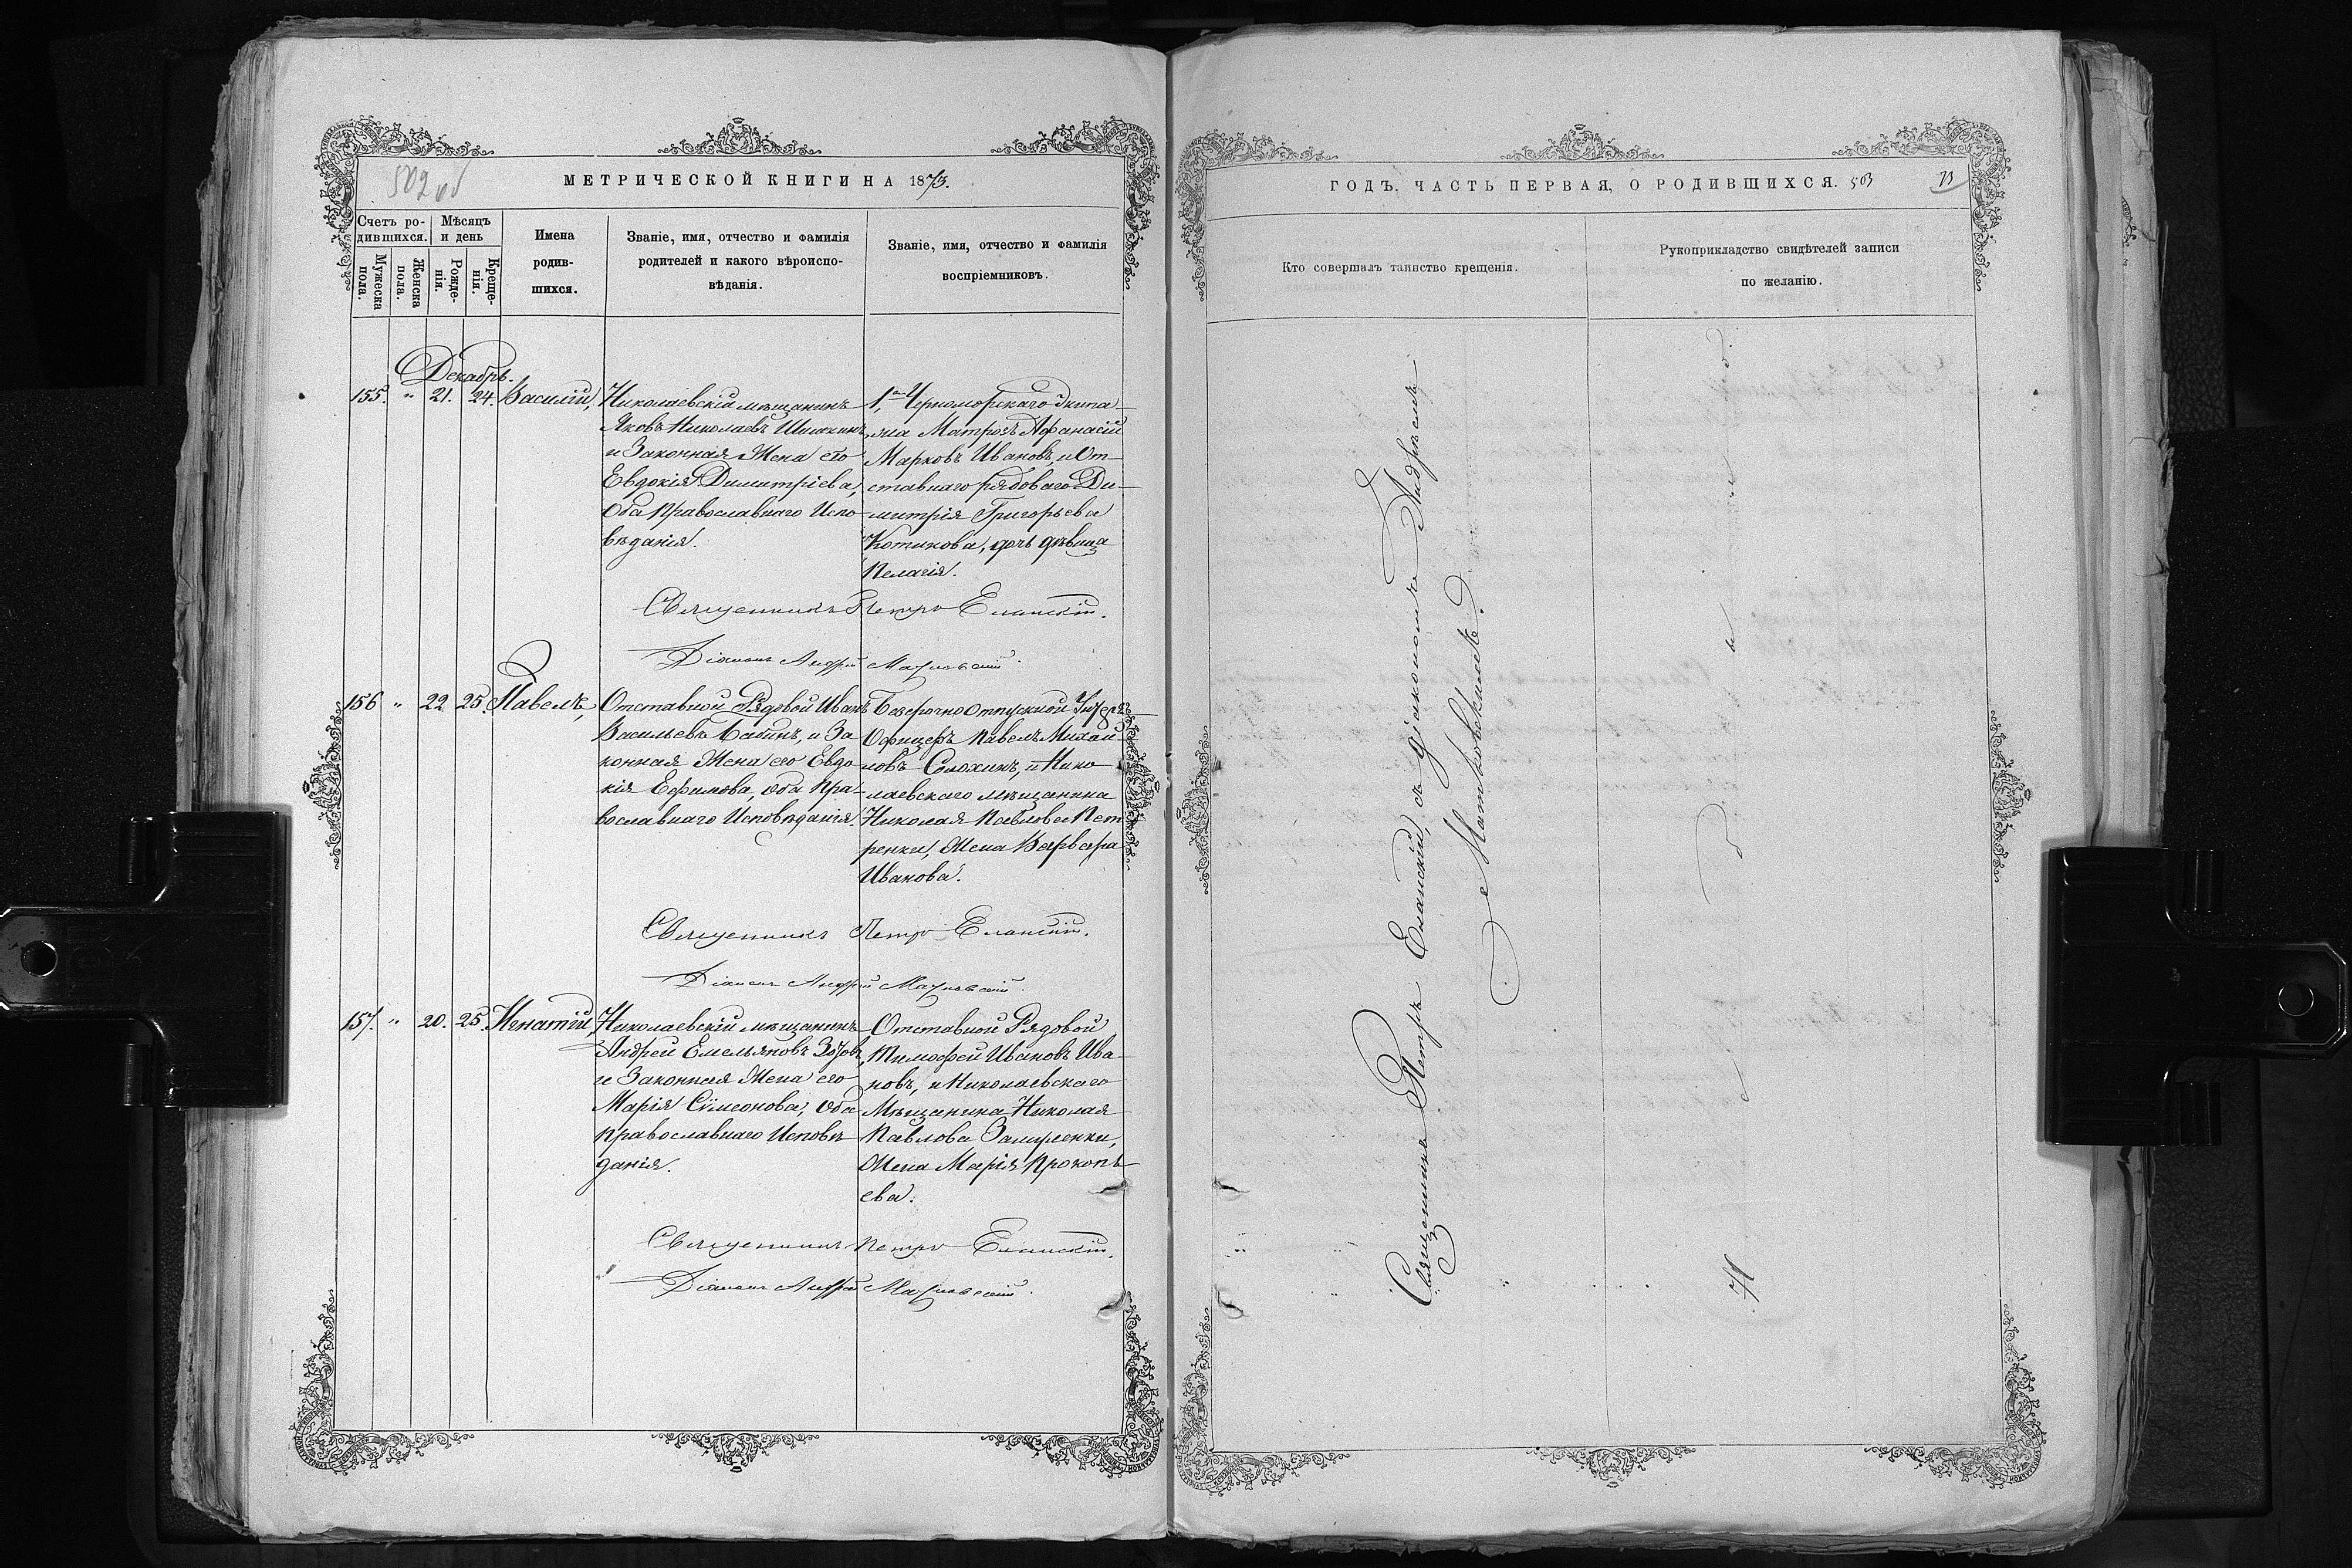 502 об
МЕТРИЧЕСКОЙ КНИГИ НА 1873.
Счетъ ро-
дившихся.
Мужеска
пола.
Женска
пола.
Мѣсяцъ
и день
Рожде-
нія.
Креще-
нія.
Имена
родив-
шихся.
Званіе, имя, отчество и фамилія
родителей и какого вѣроиспо-
вѣданія.
Званіе, имя, отчество и фамилія
воспріемниковъ.
Декабрь.
155. " 21. 24. Василій,
Николаевскій мѣщанинъ
Яковъ Николаевъ Шишкинъ,
и Законная Жена его
Евдокія Димитріева,
Оба Православнаго Испо-
вѣданія.
1,го Черноморскаго Экипа-
жа Матрозъ Афанасій
Марковъ Ивановъ, и От-
ставнаго рядоваго Ди-
митрія Григорьева
Котикова, дочь дѣвица
Пелагія.
Священникъ Петръ Еланскій.
Діаконъ Андрей
156 " 22 25. Павелъ,
Отставной Рядовой Иванъ
Васильевъ Бабинъ, и За
конная Жена его Евдо
кія Ефимова, оба Пра-
вославнаго Исповѣданія.
Безсрочноотпускной Унтеръ
Офицеръ Павелъ Михай-
ловъ Солохинъ, и Нико
лаевскаго мѣщанина
Николая Павлова Пет
ренки, Жена Варвара
Иванова.
Священникъ Петръ Еланскій.
Діаконъ Андрей
157. " 20. 25. Игнатій,
Николаевскій мѣщанинъ
Андрей Емельяновъ Зотовъ,
и Законная Жена его
Марія Сѵмеонова, Оба
Православнаго Исповѣ
данія.
Отставной Рядовой
Тимофей Ивановъ Ива-
новъ, и Николаевскаго
Мѣщанина Николая
Павлова
Жена Марія Прокопь-
ева.
Священникъ Петръ Еланскій.
Діаконъ Андрей
ГОДЪ. ЧАСТЬ ПЕРВАЯ, О РОДИВШИХСЯ. 503
73
Кто совершалъ таинство крещенія.
Рукоприкладство свидѣтелей записи
по желанію.
Священникъ Петръ Еланскій, съ діакономъ Андреемъ